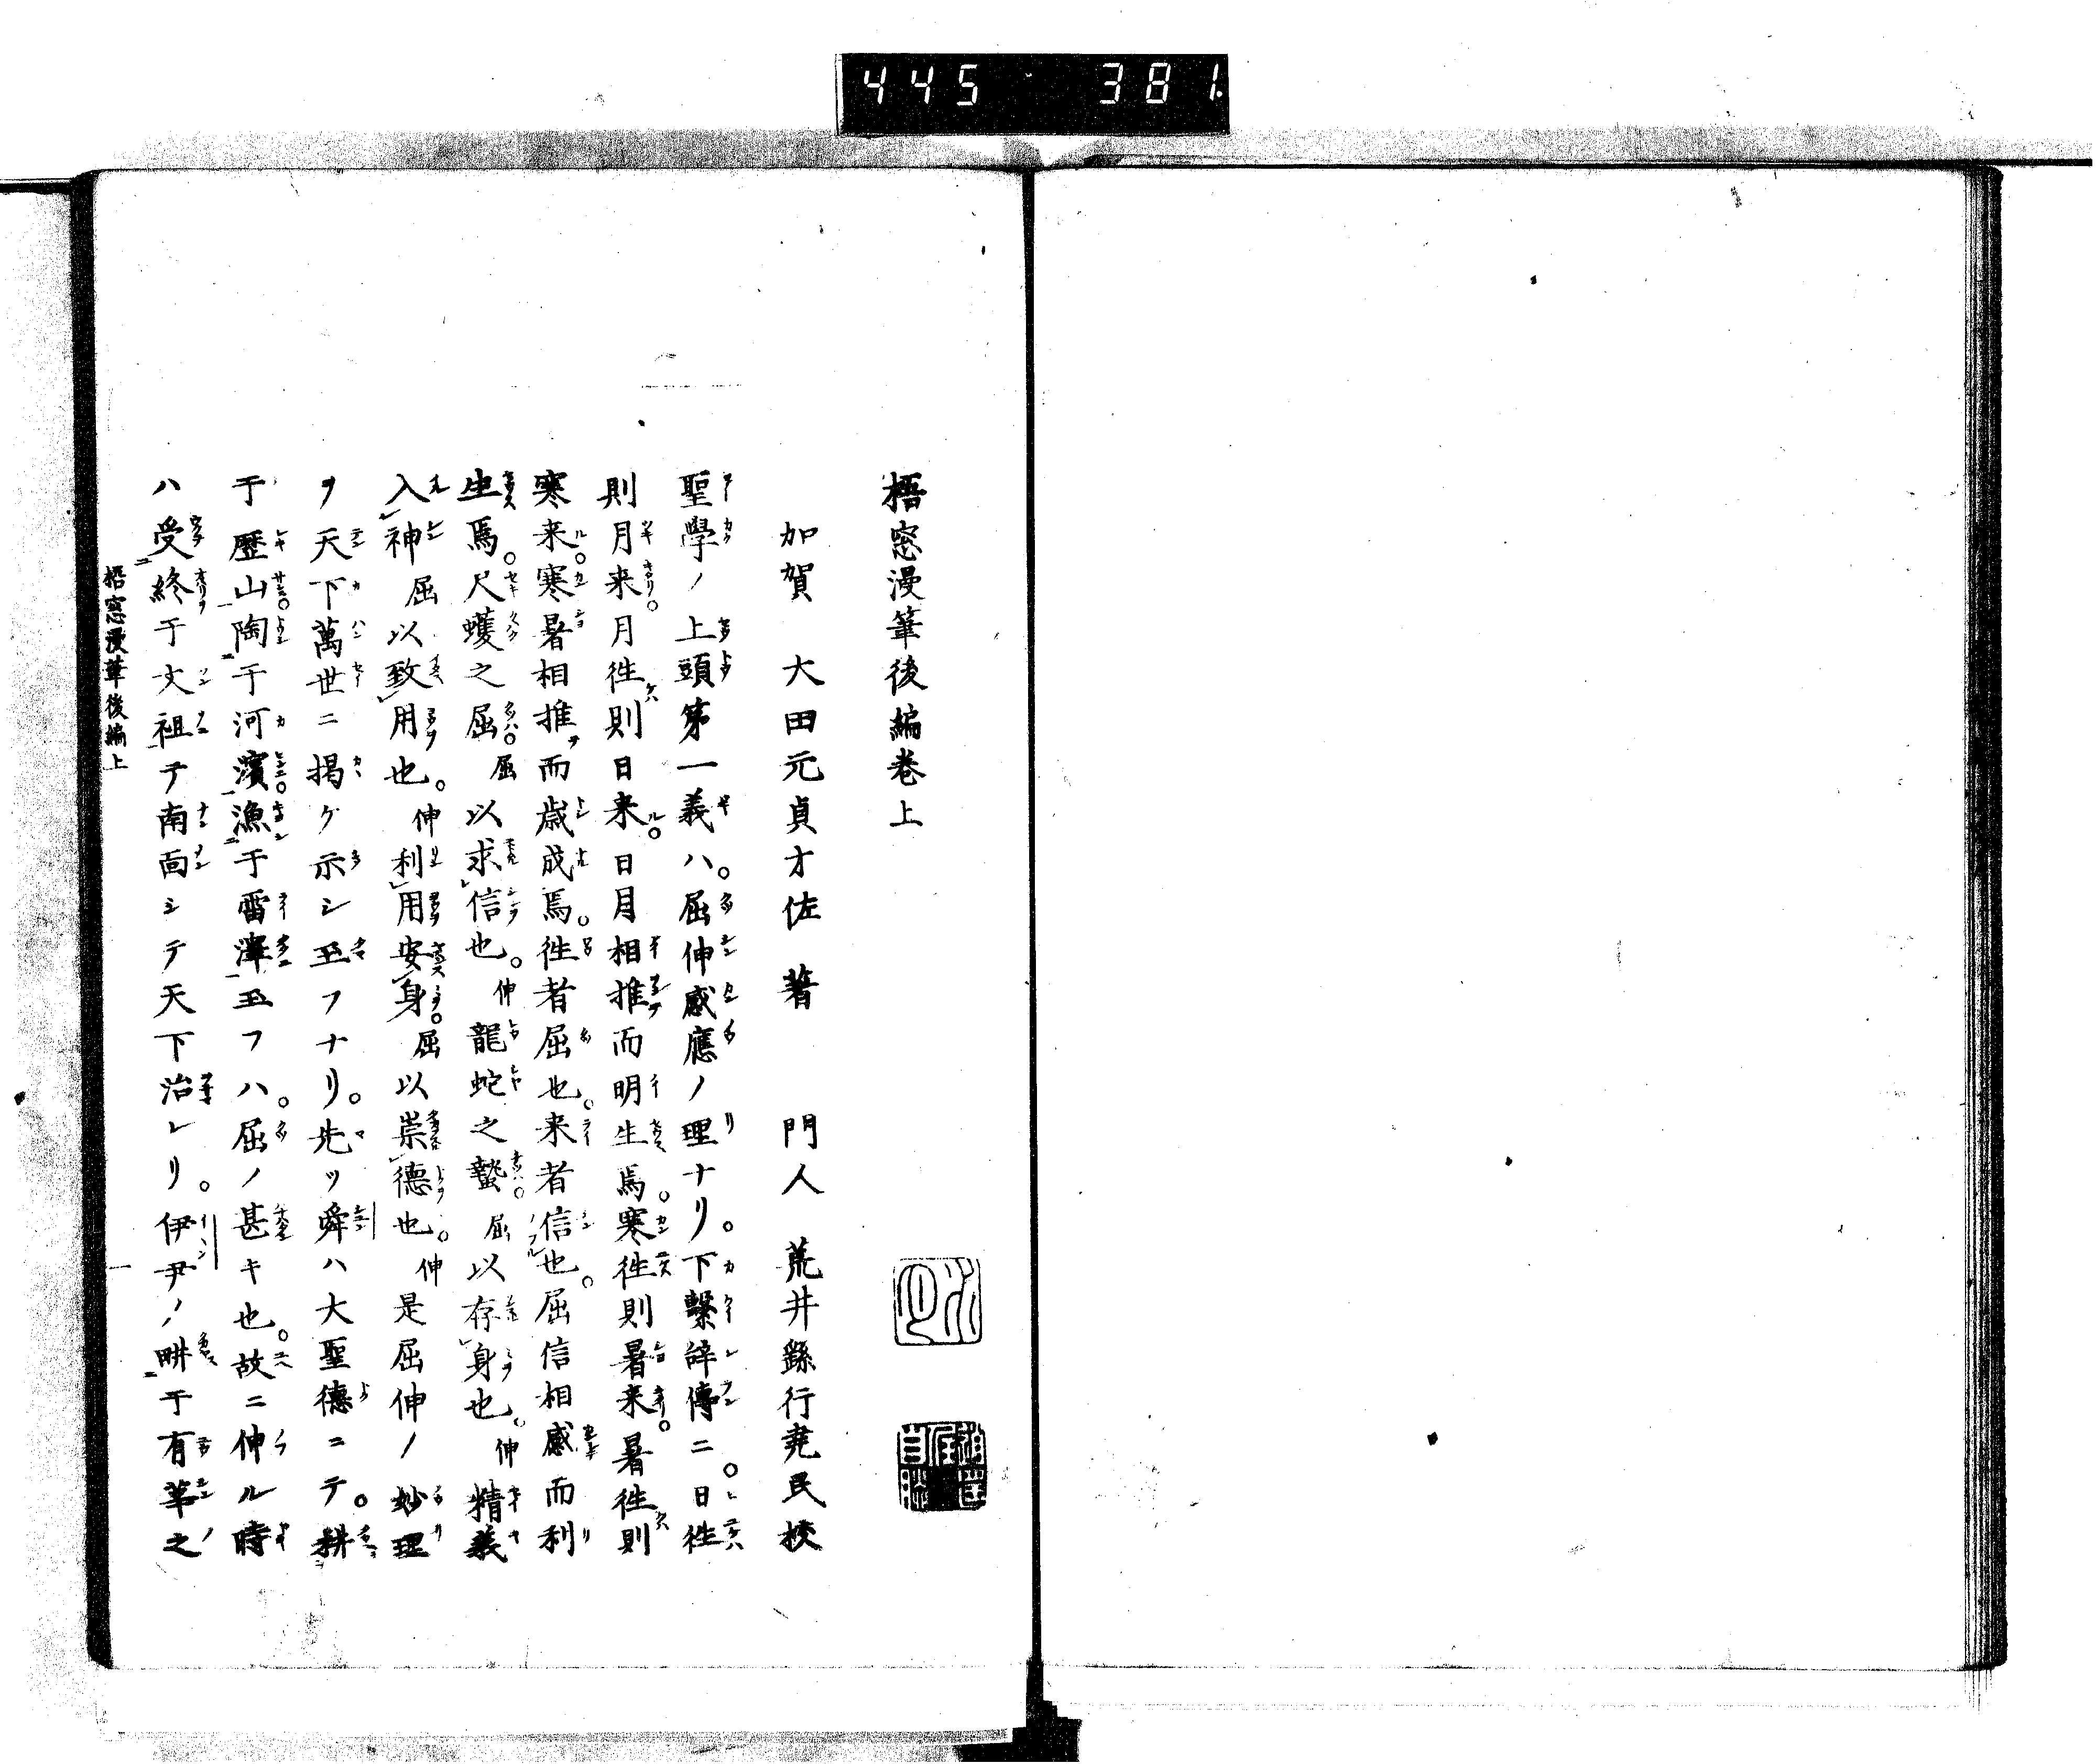 445 381
梧窓漫筆後編卷上
加賀 大田元貞才佐 著 門人 荒井繇行堯民校
聖學ノ上頭第一義ハ。屈伸感應ノ理ナリ。下繫辞傳ニ。日往
則月来。月往則日来。日月相推而明生焉。寒往則暑来。暑往則
寒来。寒暑相推而歳成焉。往者屈也。来者信也。屈信相感而利
生焉。尺蠖之屈。屈以求信也。伸龍蛇之蟄。屈以存身也。伸精義
入神屈以致用也。伸利用安身。屈以崇德也。伸是屈伸ノ妙理
ヲ天下萬世ニ掲ケ示シ玉フナリ。先ツ舜ハ大聖德ニテ。耕
于歷山陶于河濱漁于雷澤玉フハ。屈ノ甚キ也。故ニ伸ル時
ハ受終于文祖テ南面シテ天下治レリ。伊尹ノ畊于有莘之
梧窓漫筆後編上 一